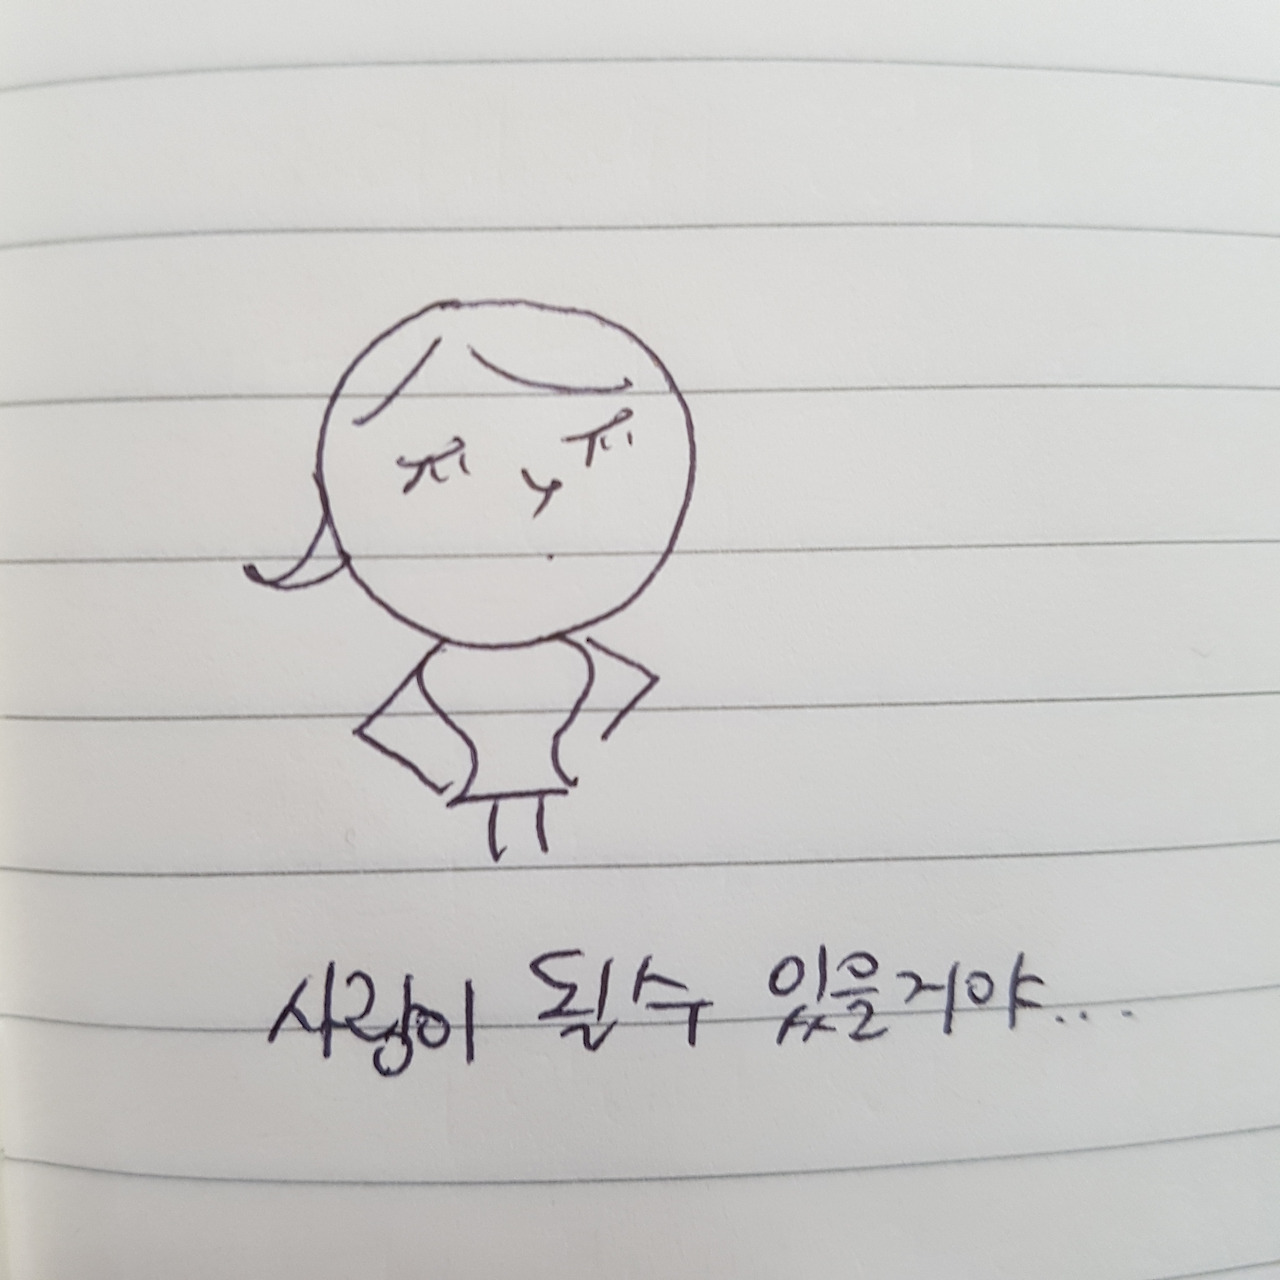 사랑이 될수 있을거야...